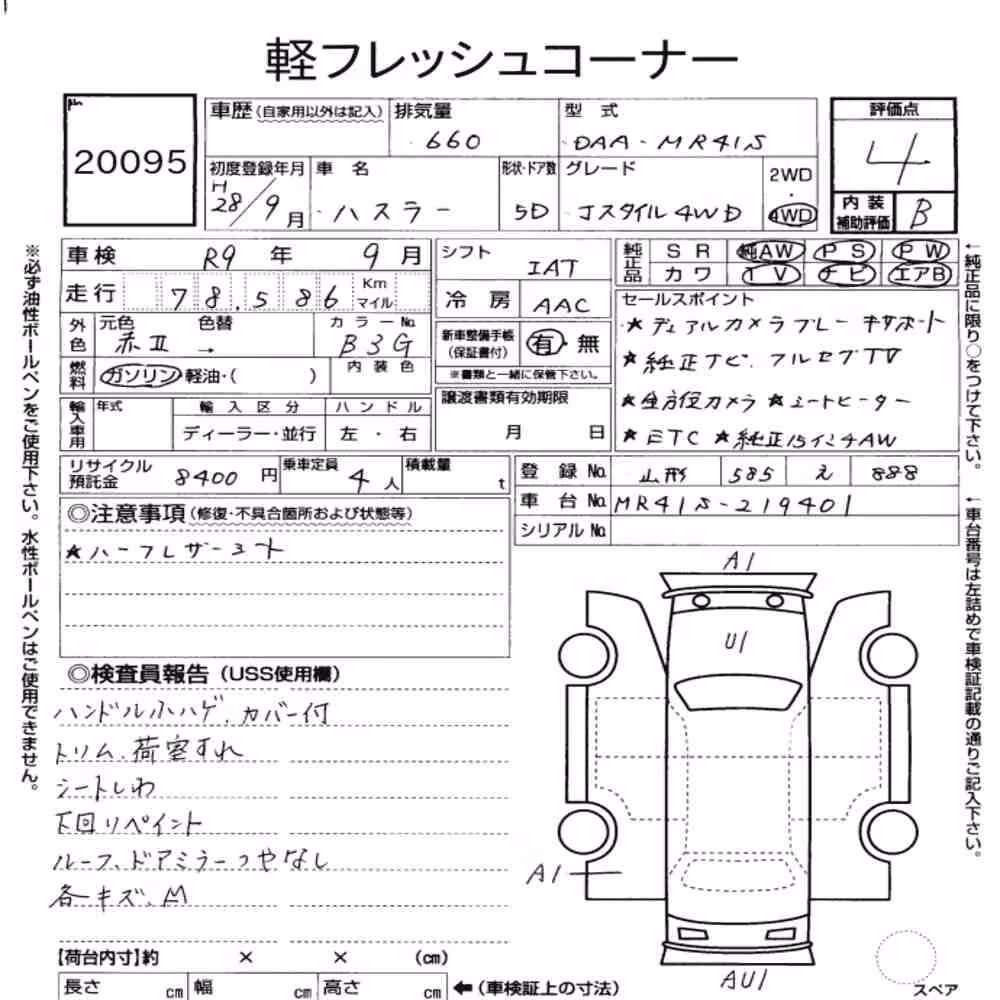 軽フレッシュコーナー
20095
車歴(自家用以外は記入) 排気量 660 型式 DAA-MR41S
評価点 4
初度登録年月 H28/9月 車名 ハスラー 形状・ドア数 5D グレード Jスタイル4WD 2WD・4WD
内装補助評価 B
車検 R9年 9月 シフト IAT 純正品 SR 純AW PS PW
カワ TV ナビ エアB
走行 78,586 Km マイル 冷房 AAC
外色 元色 赤II 色替 → カラーNo. B3G
新車整備手帳(保証書付) 有・無
※書類と一緒に保管下さい。
燃料 ガソリン 軽油・( ) 内装色
セールスポイント
★デュアルカメラブレーキサポート
★純正ナビ.フルセグTV
★全方位カメラ★シートヒーター
★ETC ★純正15インチAW
輸入車用 年式 輸入区分 ディーラー・並行 ハンドル 左・右
譲渡書類有効期限 月 日
リサイクル預託金 8400円 乗車定員 4人 積載量 t
登録No. 山形 585 え 888
車台No. MR41S-219401
シリアルNo.
◎注意事項(修復・不具合箇所および状態等)
★ハーフレザーシート
◎検査員報告(USS使用欄)
ハンドル小ハゲ、カバー付
トリム、荷室すれ
シートしわ
下回リペイント
ルーフ、ドアミラーつやなし
各キズ、M
A1
U1
A1
AU1
スペア
【荷台内寸】約 × × (cm)
長さ cm 幅 cm 高さ cm ←(車検証上の寸法)
※必ず油性ボールペンをご使用下さい。水性ボールペンはご使用できません。
←純正品に限り○をつけて下さい。
←車台番号は左詰めで車検証記載の通りご記入下さい。